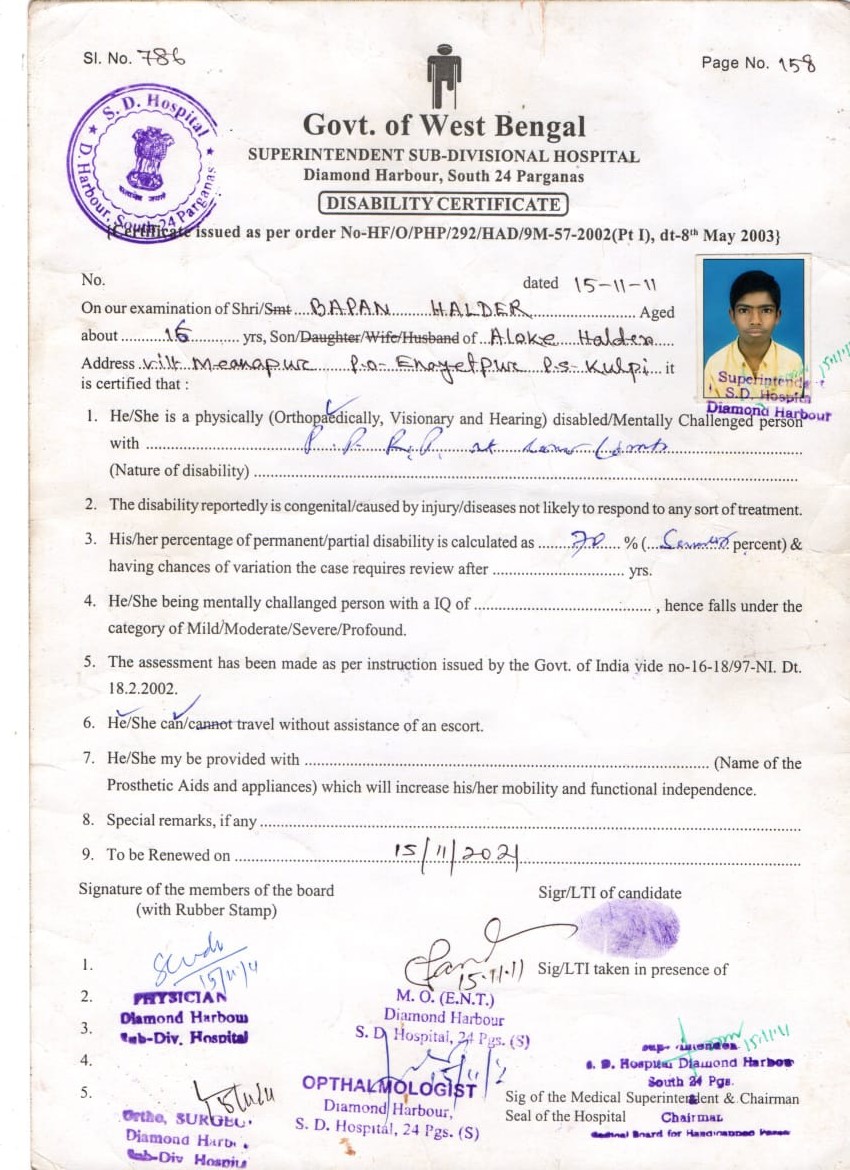 Sl. No. 786
Page No. 158
S. D. Hospital
D. Harbour, South 24 Parganas
सत्यमेव जयते
Govt. of West Bengal
SUPERINTENDENT SUB-DIVISIONAL HOSPITAL
Diamond Harbour, South 24 Parganas
DISABILITY CERTIFICATE
{Certificate issued as per order No-HF/O/PHP/292/HAD/9M-57-2002(Pt I), dt-8th May 2003}
No. dated 15-11-11
On our examination of Shri/Smt....BAPAN HALDER.... Aged
about ....16.... yrs, Son/Daughter/Wife/Husband of Aloke Halder
Address Vill Meanapur P.o- Enayetpur P.s- Kulpi it
is certified that :
15/11/11
Superintendent
S.D. Hospital
Diamond Harbour
1. He/She is a physically (Orthopaedically, Visionary and Hearing) disabled/Mentally Challenged person
with P.P.R.P. Lower Limb
(Nature of disability)
2. The disability reportedly is congenital/caused by injury/diseases not likely to respond to any sort of treatment.
3. His/her percentage of permanent/partial disability is calculated as 70 % ( percent) &
having chances of variation the case requires review after yrs.
4. He/She being mentally challanged person with a IQ of , hence falls under the
category of Mild/Moderate/Severe/Profound.
5. The assessment has been made as per instruction issued by the Govt. of India vide no-16-18/97-NI. Dt.
18.2.2002.
6. He/She can/cannot travel without assistance of an escort.
7. He/She my be provided with (Name of the
Prosthetic Aids and appliances) which will increase his/her mobility and functional independence.
8. Special remarks, if any
9. To be Renewed on 15/11/2021
Signature of the members of the board
(with Rubber Stamp)
Sigr/LTI of candidate
1.
15/11/11
15.11.11
Sig/LTI taken in presence of
2. PHYSICIAN
Diamond Harbour
3. Sub-Div. Hospital
M. O. (E.N.T.)
Diamond Harbour
S. D. Hospital, 24 Pgs. (S)
4.
5.
15/11/11
Ortho, SURGEO.
Diamond Harb.
Sub-Div Hospital
OPTHALMOLOGIST
Diamond Harbour,
S. D. Hospital, 24 Pgs. (S)
15/11/11
S. D. Hospital Diamond Harbour
South 24 Pgs.
Sig of the Medical Superintendent & Chairman
Seal of the Hospital
Chairman
Medical Board for Handicapped Person